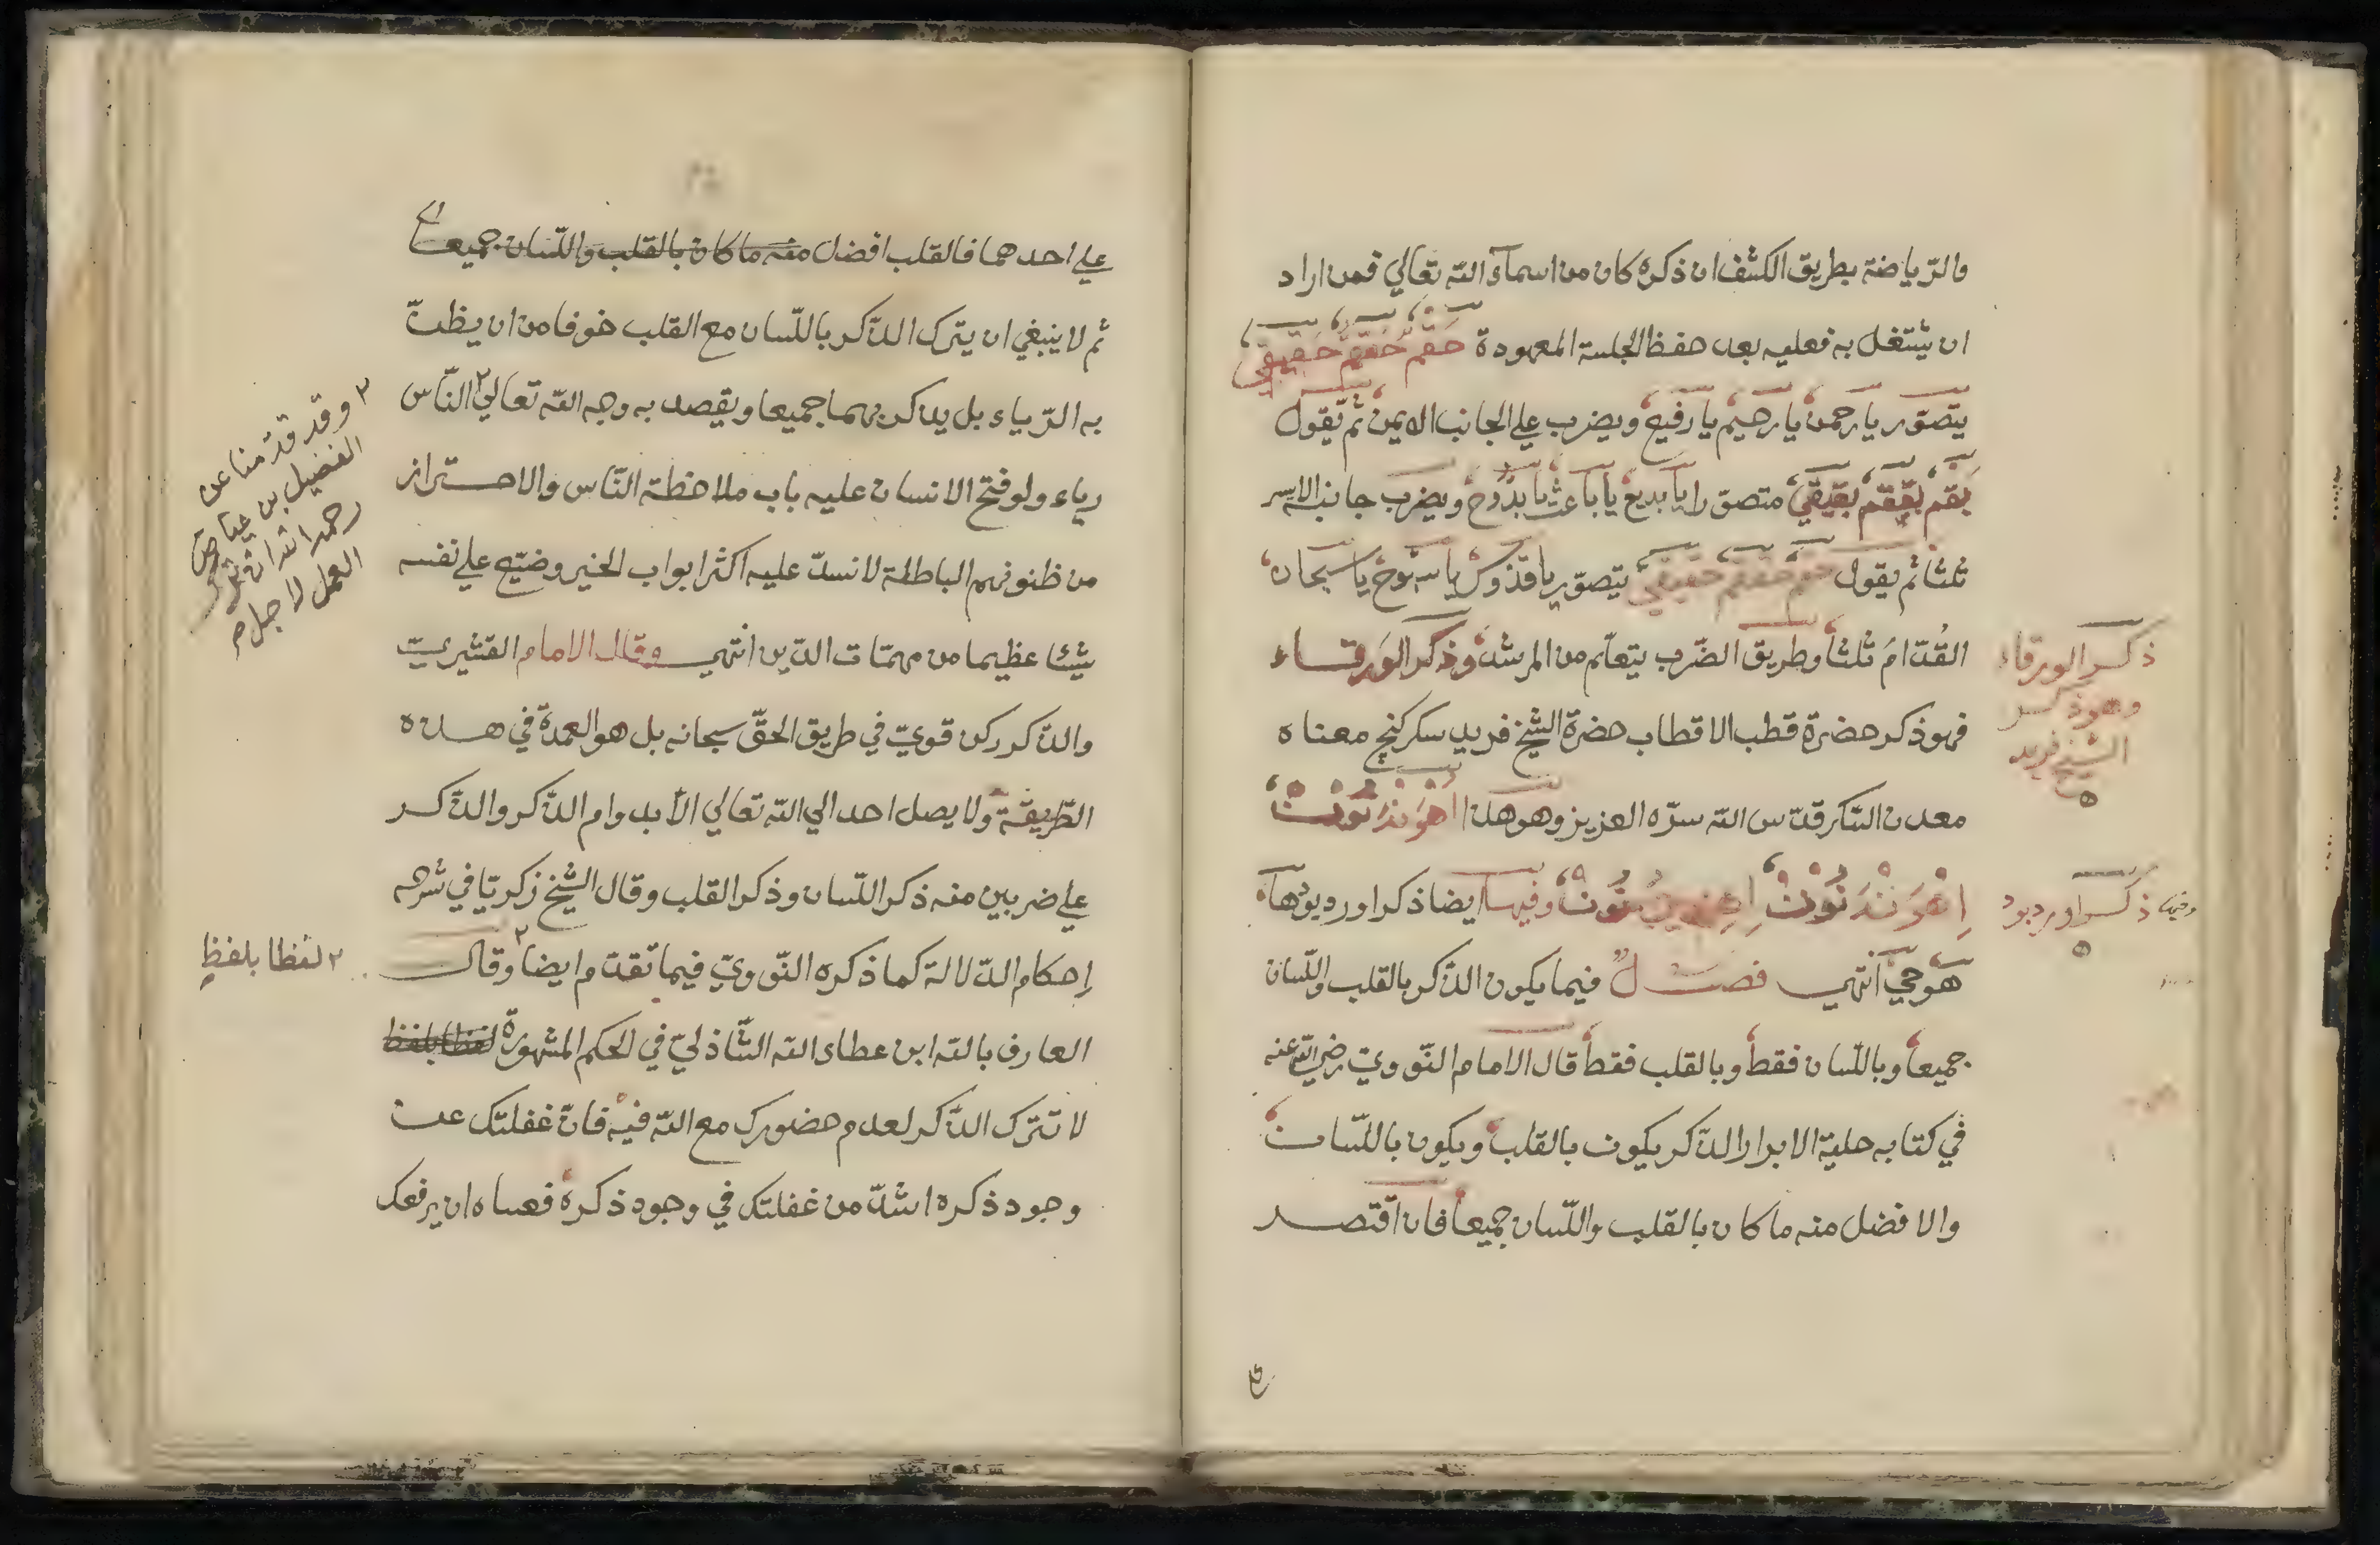 والرّياضة بطريق الكشف ان ذكره كان من اسمآء اللّه تعالي فمن اراد
ان يشتغل به فعليه بعد حفظ الجلسة المعهودة حَقَمْ حَقَقَمْ حَقِيقِي
يتصوّر يا رحمن يا رحيم يا رفيع ويضرب علي الجانب الايمن ثم يقول
بَقَمْ بَقَقَمْ بَقِيقِي متصوّرا يا بديع يا باعث يا بدّوح ويضرب جانب الايسر
ثلثا ثم يقول يتصوّر يا قدّوس يا سبّوح يا سبحان
القُدّام ثلثا وطريق الضّرب يتعلّم من المرشد وذكر الورقاء
فهو ذكر حضرة قطب الاقطاب حضرة الشيخ فريد سكر كنج معناه
معدن السّكر قدّس اللّه سرّه العزيز وهو هذا
وفيها ايضا ذكر اورديوها
هوجي انتهي فصل فيما يكون الذّكر بالقلب واللّسان
جميعا وباللّسان فقط وبالقلب فقط قال الامام النّوويّ رضي اللّه عنه
في كتابه حلية الابرار الذّكر يكون بالقلب ويكون باللّسان
والافضل منه ما كان بالقلب واللّسان جميعا فان اقتصر
ذكر الورقاء
وهو ذكر
الشيخ فريد
وفيها ذكر اورديود
علي احدهما فالقلب افضل منه ما كان بالقلب واللّسان جميعا
ثم لا ينبغي ان يترك الذّكر باللّسان مع القلب خوفا من ان يظنّ
به الرّياء بل يذكر بهما جميعا ويقصد به وجه اللّه تعالي ٢ النّاس
رياء ولو فتح الانسان عليه باب ملاحظة النّاس والاحتراز
من ظنونهم الباطلة لانسدّ عليه اكثر ابواب الخير وضيّع علي نفسه
شيئا عظيما من مهمّات الدّين انتهي وقال الامام القشيريّ
والذّكر ركن قويّ في طريق الحقّ سبحانه بل هو العمدة في هذه
الطّريقة ولا يصل احد الي اللّه تعالي الّا بدوام الذّكر والذّكر
علي ضربين منه ذكر اللّسان وذكر القلب وقال الشيخ زكريّا في شرحه
اِحكام الدّلالة كما ذكره النّوويّ فيما تقدّم ايضا ٢ وقال
العارف باللّه ابن عطاء اللّه الشّاذليّ في الحكم المشهورة لفظا بلفظ
لا تترك الذّكر لعدم حضورك مع اللّه فيه فانّ غفلتك عن
وجود ذكره اشدّ من غفلتك في وجود ذكره فعساه ان يرفعك
٢ وقد قدّمنا عن
الفضيل بن عياض
رحمه اللّه ان ترك
العمل لاجلهم
٢ لفظا بلفظٍ